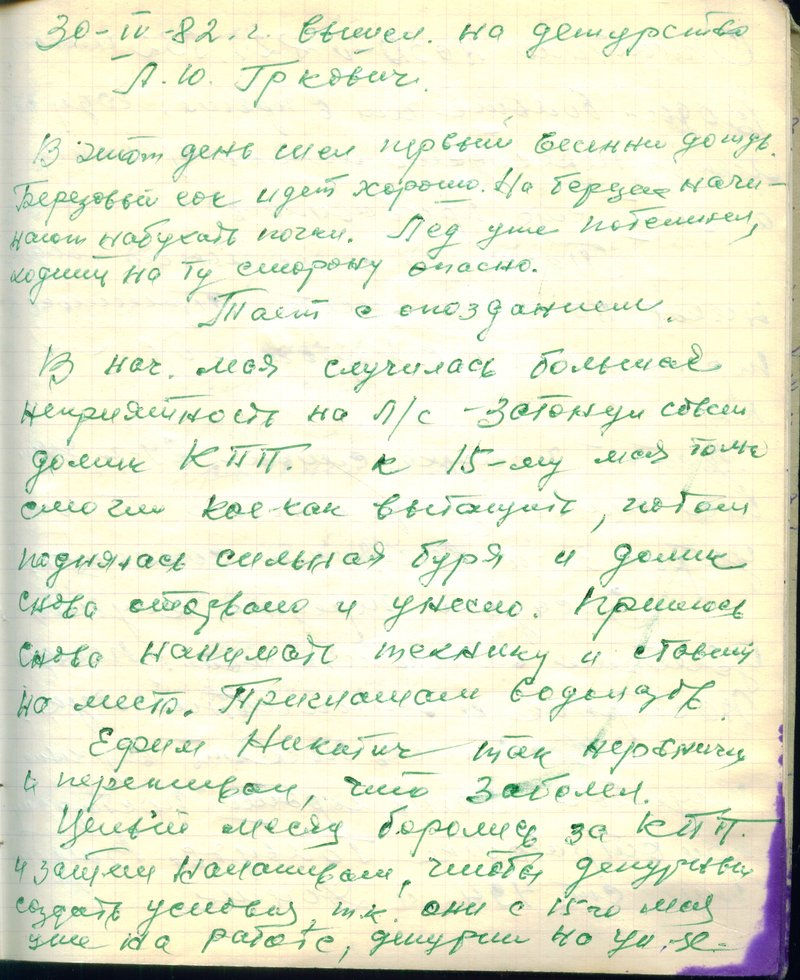 30-IV-82.г. вышел. на дежурство
Л.Ю. Гркович.
В этот день шел первый весенни дождь.
Березовый сок идет хорошо. На берцае начи-
нают набухать почки. Лёд уже потемнел,
ходить на ту сторону опасно.
Тает с опозданием.
В нач. мая случилась большая
неприятность на Л/с - Затонул совсем
домик КПП. к 15-му мая толь
смогли кое-как вытащить, потом
поднялась сильная буря и домик
снова оторвало и унесло. Пришлось
снова нанимать технику и ставить
на место. Приглашали водолазов.
Ефим Никитич так нервничал
и переживал, что заболел.
Целый месяц боролись за КПП.
и затем налаживали, чтобы дежурным
создать условия, т.к. они с 15 го мая
уже на работе, дежурим на